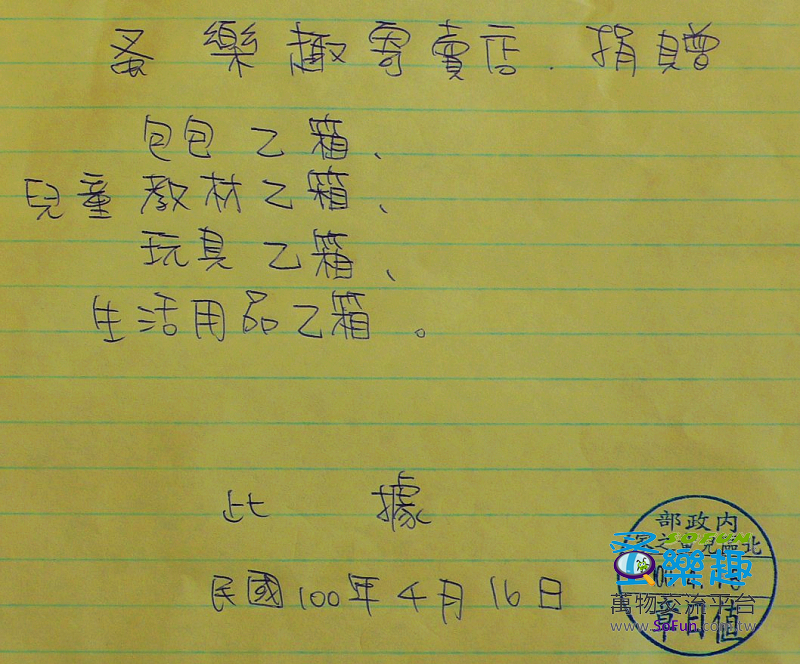 蚤樂趣寄賣店.捐贈
包包乙箱、
兒童教材乙箱、
玩具乙箱、
生活用品乙箱。
此據
民國100年4月16日
內政部
北區兒童之家
值日章
SOFUN
蚤樂趣
萬物交流平台
www.SoFun.com.tw